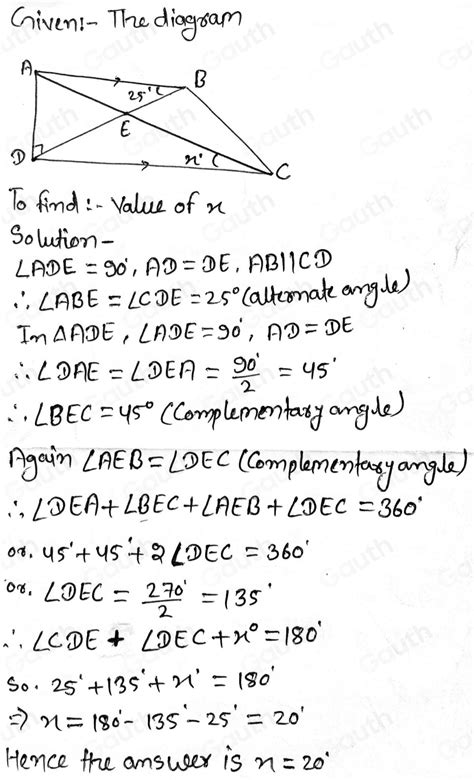 Given:- The diagram
A
B
25°
E
D
x°
C
To find :- Value of x
Solution -
∠ADE = 90°, AD = DE, AB||CD
∴ ∠ABE = ∠CDE = 25° (alternate angle)
In △ADE, ∠ADE = 90°, AD = DE
∴ ∠DAE = ∠DEA = 90°/2 = 45°
∴ ∠BEC = 45° (Complementary angle)
Again ∠AEB = ∠DEC (Complementary angle)
∴ ∠DEA + ∠BEC + ∠AEB + ∠DEC = 360°
or. 45° + 45° + 2 ∠DEC = 360°
or. ∠DEC = 270°/2 = 135°
∴ ∠CDE + ∠DEC + x° = 180°
So. 25° + 135° + x° = 180°
⇒ x = 180° - 135° - 25° = 20°
Hence the answer is x = 20°